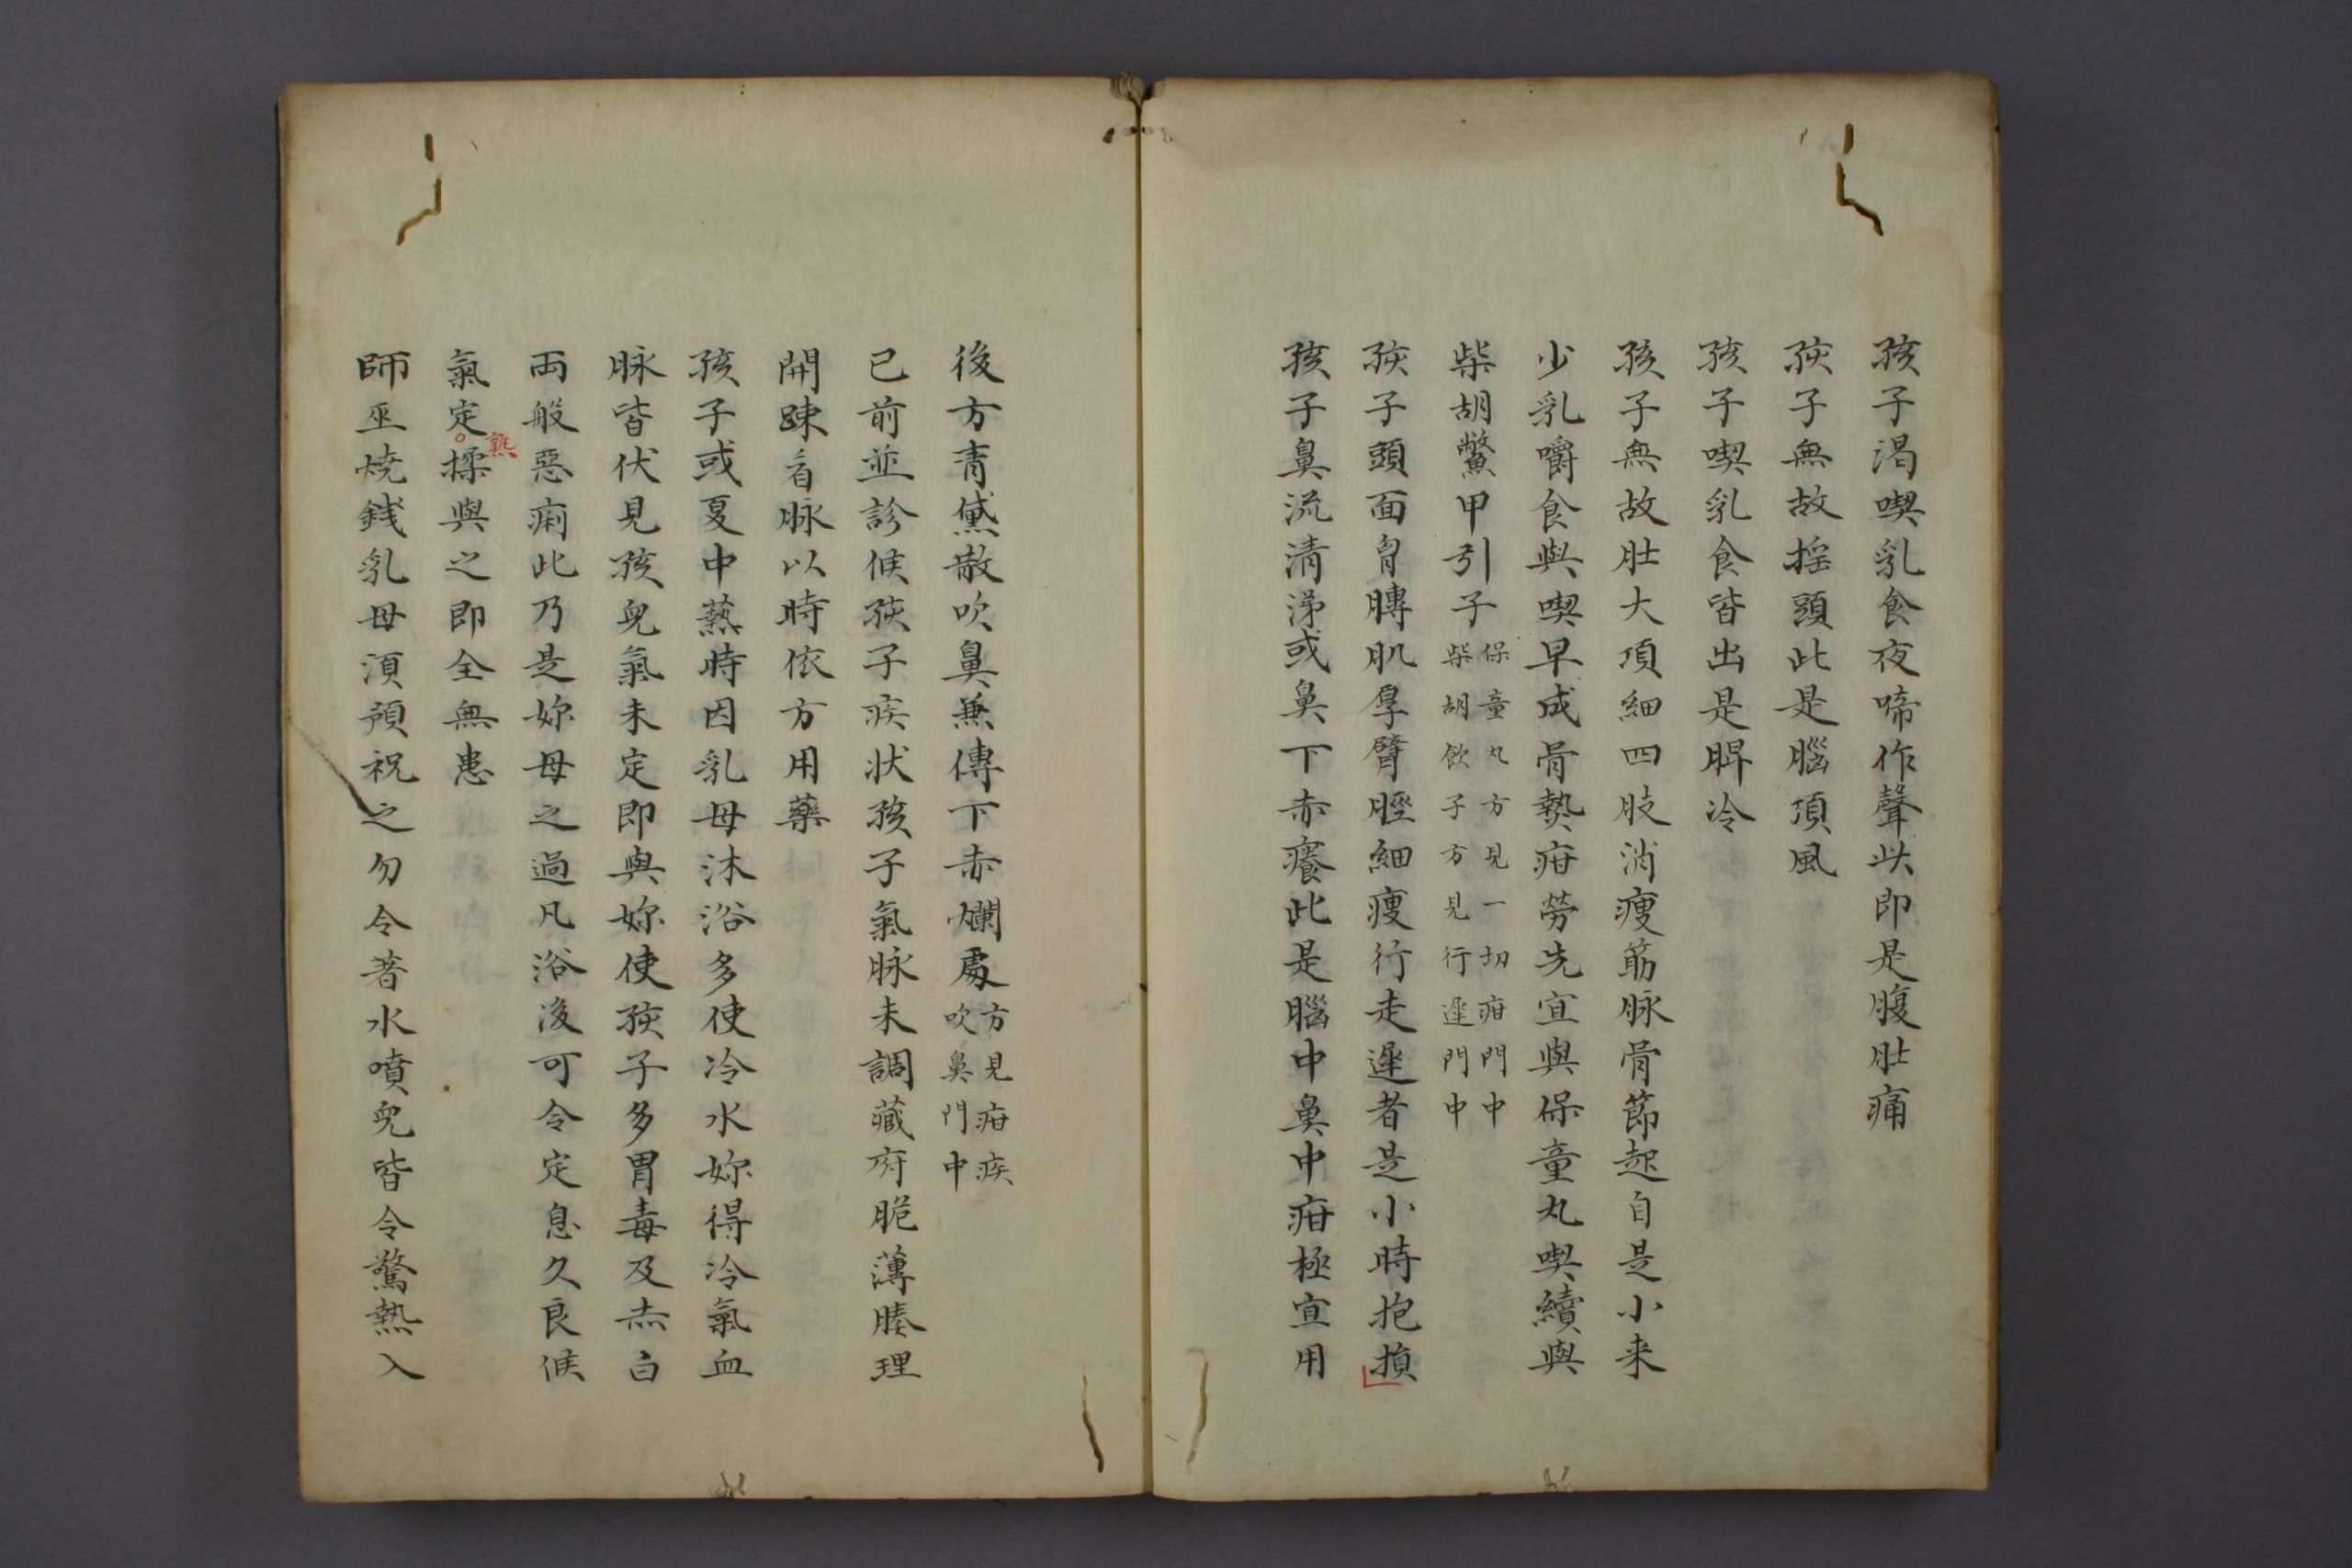 孩子渴喫乳食夜啼作聲此即是腹肚痛
孩子無故揺頭此是腦項風
孩子喫乳食皆出是脾冷
孩子無故肚大項細四肢消瘦筋脉骨節起自是小来
少乳嚼食與喫早成骨熱疳勞先宜與保童丸喫續與
柴胡鱉甲引子保童丸方見一切疳門中
柴胡飲子方見行遲門中
孩子頭面胷膊肌厚臂脛細瘦行走遲者是小時抱損
孩子鼻流清涕或鼻下赤癢此是腦中鼻中疳極宜用
後方青黛散吹鼻兼傅下赤爛處方見疳疾
吹鼻門中
已前並診候孩子疾状孩子氣脉未調藏府脆薄腠理
開踈看脉以時依方用藥
孩子或夏中蒸時因乳母沐浴多使冷水妳得冷氣血
脉皆伏見孩兒氣未定即與妳使孩子多胃毒及赤白
両般惡痢此乃是妳母之過凡浴後可令定息久良候
氣定揉與之即全無患
熟
師巫燒錢乳母湏預祝之勿令著水噴兒皆令驚熱入